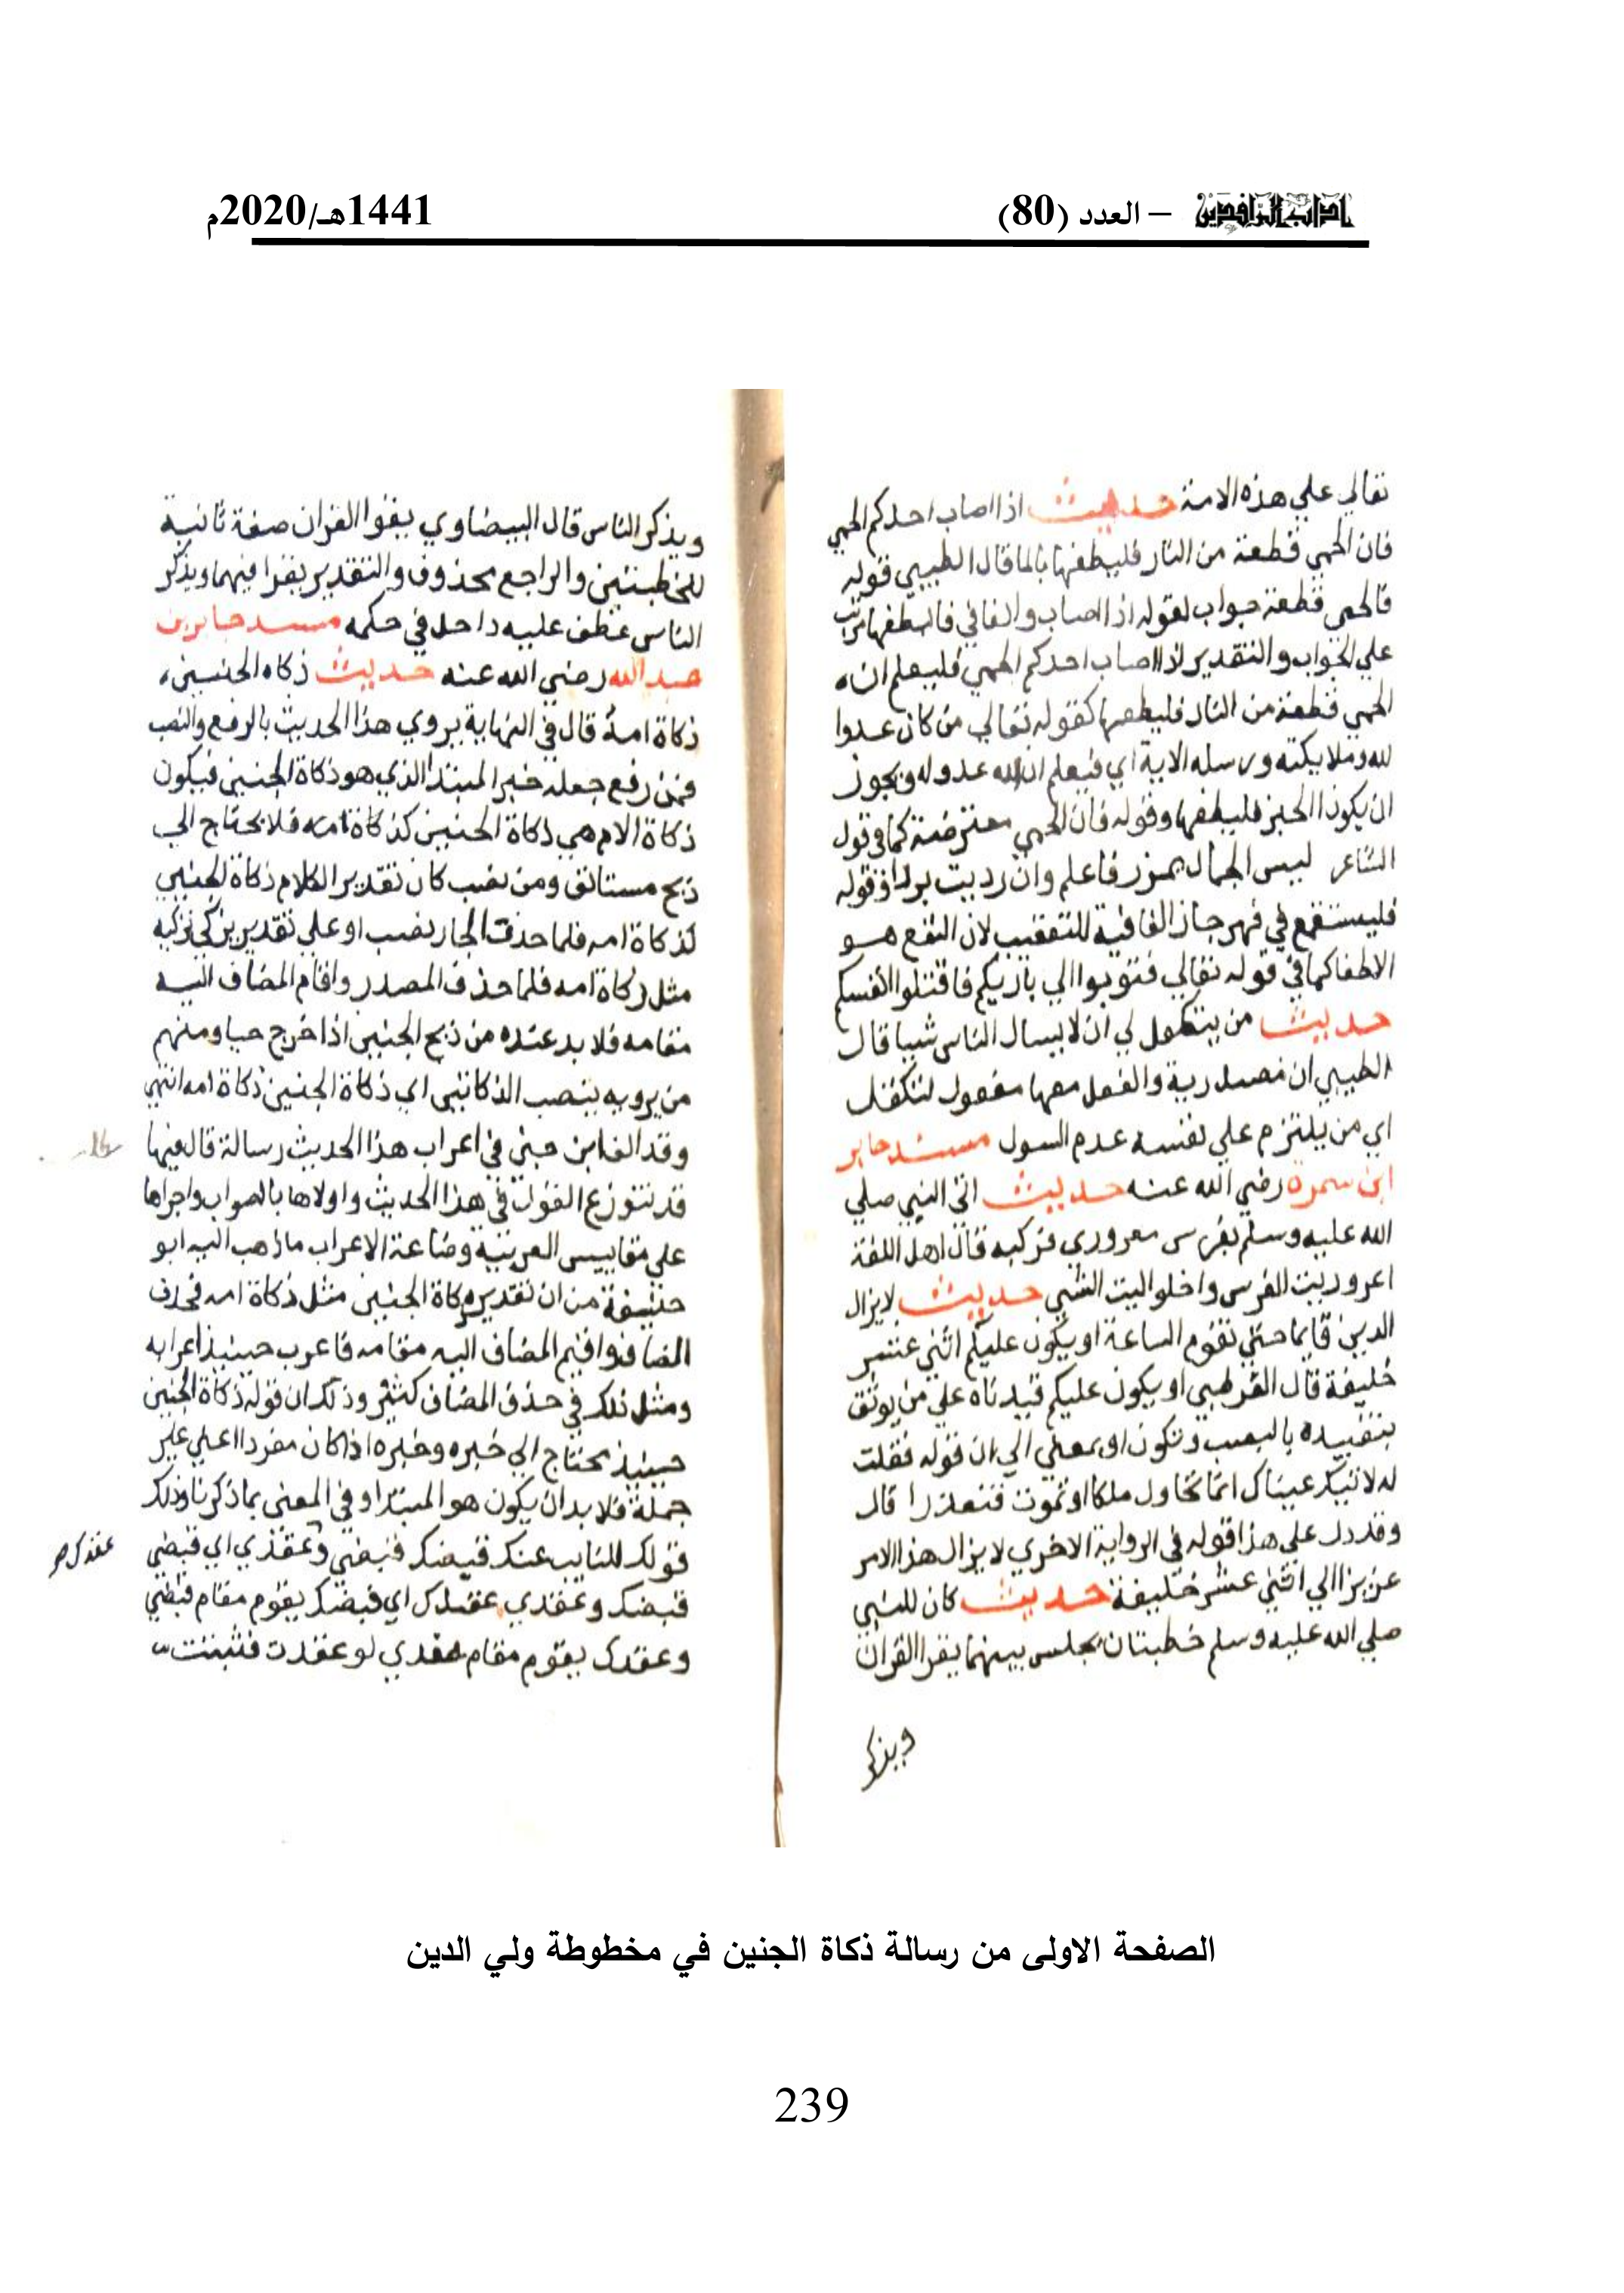 آداب الرافدين – العدد (80) 1441هـ/2020م
تعالي علي هذه الامة حديث اذا اصاب احدكم الحمي
فان الحمي قطعة من النار فليطفها بالما قال الطيبي قوله
فالحمي قطعة جواب لقوله اذا اصاب والفا في فليطفها مرتب
علي الجواب والتقدير اذا اصاب احدكم الحمي فليعلم ان
الحمي قطعة من النار فليطفها كقوله تعالي من كان عدوا
لله وملايكته ورسله الاية اي فيعلم ان الله عدو له ويجوز
ان يكون الخبر فليطفها وقوله فان الحمي معترضة كما في قول
الشاعر ليس الجمال بميزر فاعلم وان رديت بردا وقوله
فليستنقع في نهر جاز الفا فيه للتعقيب لان النقع هو
الاطفا كما في قوله تعالي فتوبوا الي باريكم فاقتلوا انفسكم
حديث من يتكفل لي ان لا يسال الناس شيا قال
الطيبي ان مصدرية والفعل معها مفعول لتكفل
اي من يلتزم علي نفسه عدم السول مسند جابر
ابن سمرة رضي الله عنه حديث اتي النبي صلي
الله عليه وسلم بفرس معروري فركبه قال اهل اللغة
اعروريت الفرس واحلوليت الشي حديث لا يزال
الدين قايما حتي تقوم الساعة او يكون عليكم اثني عشر
خليفة قال القرطبي او يكون عليكم قيدناه علي من يوثق
بتقييده بالنصب وتكون او بمعني الي ان قوله فقلت
له لا تبك عيناك انما نحاول ملكا او نموت فنعذرا قال
وقد دل علي هذا قوله في الرواية الاخري لا يزال هذا الامر
عزيزا الي اثني عشر خليفة حديث كان للنبي
صلي الله عليه وسلم خطبتان يجلس بينهما يقرا القران
ويذكر
ويذكر الناس قال البيضاوي يقرا القران صفة ثانية
للخطبتين والراجع محذوف والتقدير يقرا فيهما ويذكر
الناس عطف عليه داخل في حكمه مسند جابر بن
عبد الله رضي الله عنه حديث ذكاه الجنين
ذكاة امه قال في النهاية يروي هذا الحديث بالرفع والنصب
فمن رفع جعله خبر المبتدا الذي هو ذكاة الجنين فيكون
ذكاة الام هي ذكاة الجنين كذكاة امه فلا يحتاج الي
ذبح مستانف ومن نصب كان تقدير الكلام ذكاة الجنين
كذكاة امه فلما حذف الجار نصب او علي تقدير يزكي تزكيه
مثل ذكاة امه فلما حذف المصدر واقام المضاف اليه
مقامه فلا بد عنده من ذبح الجنين اذا خرج حيا ومنهم
من يرويه بنصب الذكاتين اي ذكاة الجنين ذكاة امه انتهي
وقد الف ابن جني في اعراب هذا الحديث رسالة قال فيها
قد تنوزع القول في هذا الحديث واولاها بالصواب واجراها
علي مقاييس العربية وصناعة الاعراب ما ذهب اليه ابو
حنيفة من ان تقديره ذكاة الجنين مثل ذكاة امه فحذف
المضاف واقيم المضاف اليه مقامه فاعرب حينيذ اعرابه
ومثل ذلك في حذف المضاف كثير وذلك ان قوله ذكاة الجنين
حينيذ يحتاج الي خبره وخبره اذا كان مفردا اعني غير
جملة فلا بد ان يكون هو المبتدا وفي المعني بما ذكرنا وذلك
قولك للنايب عنك قبضك قبضي وعقدي اي قبضي
عقدك صح
قبضك وعقدي عقدك اي قبضك يقوم مقام قبضي
وعقدك يقوم مقام عقدي لو عقدت فثبتت
الصفحة الاولى من رسالة ذكاة الجنين في مخطوطة ولي الدين
239